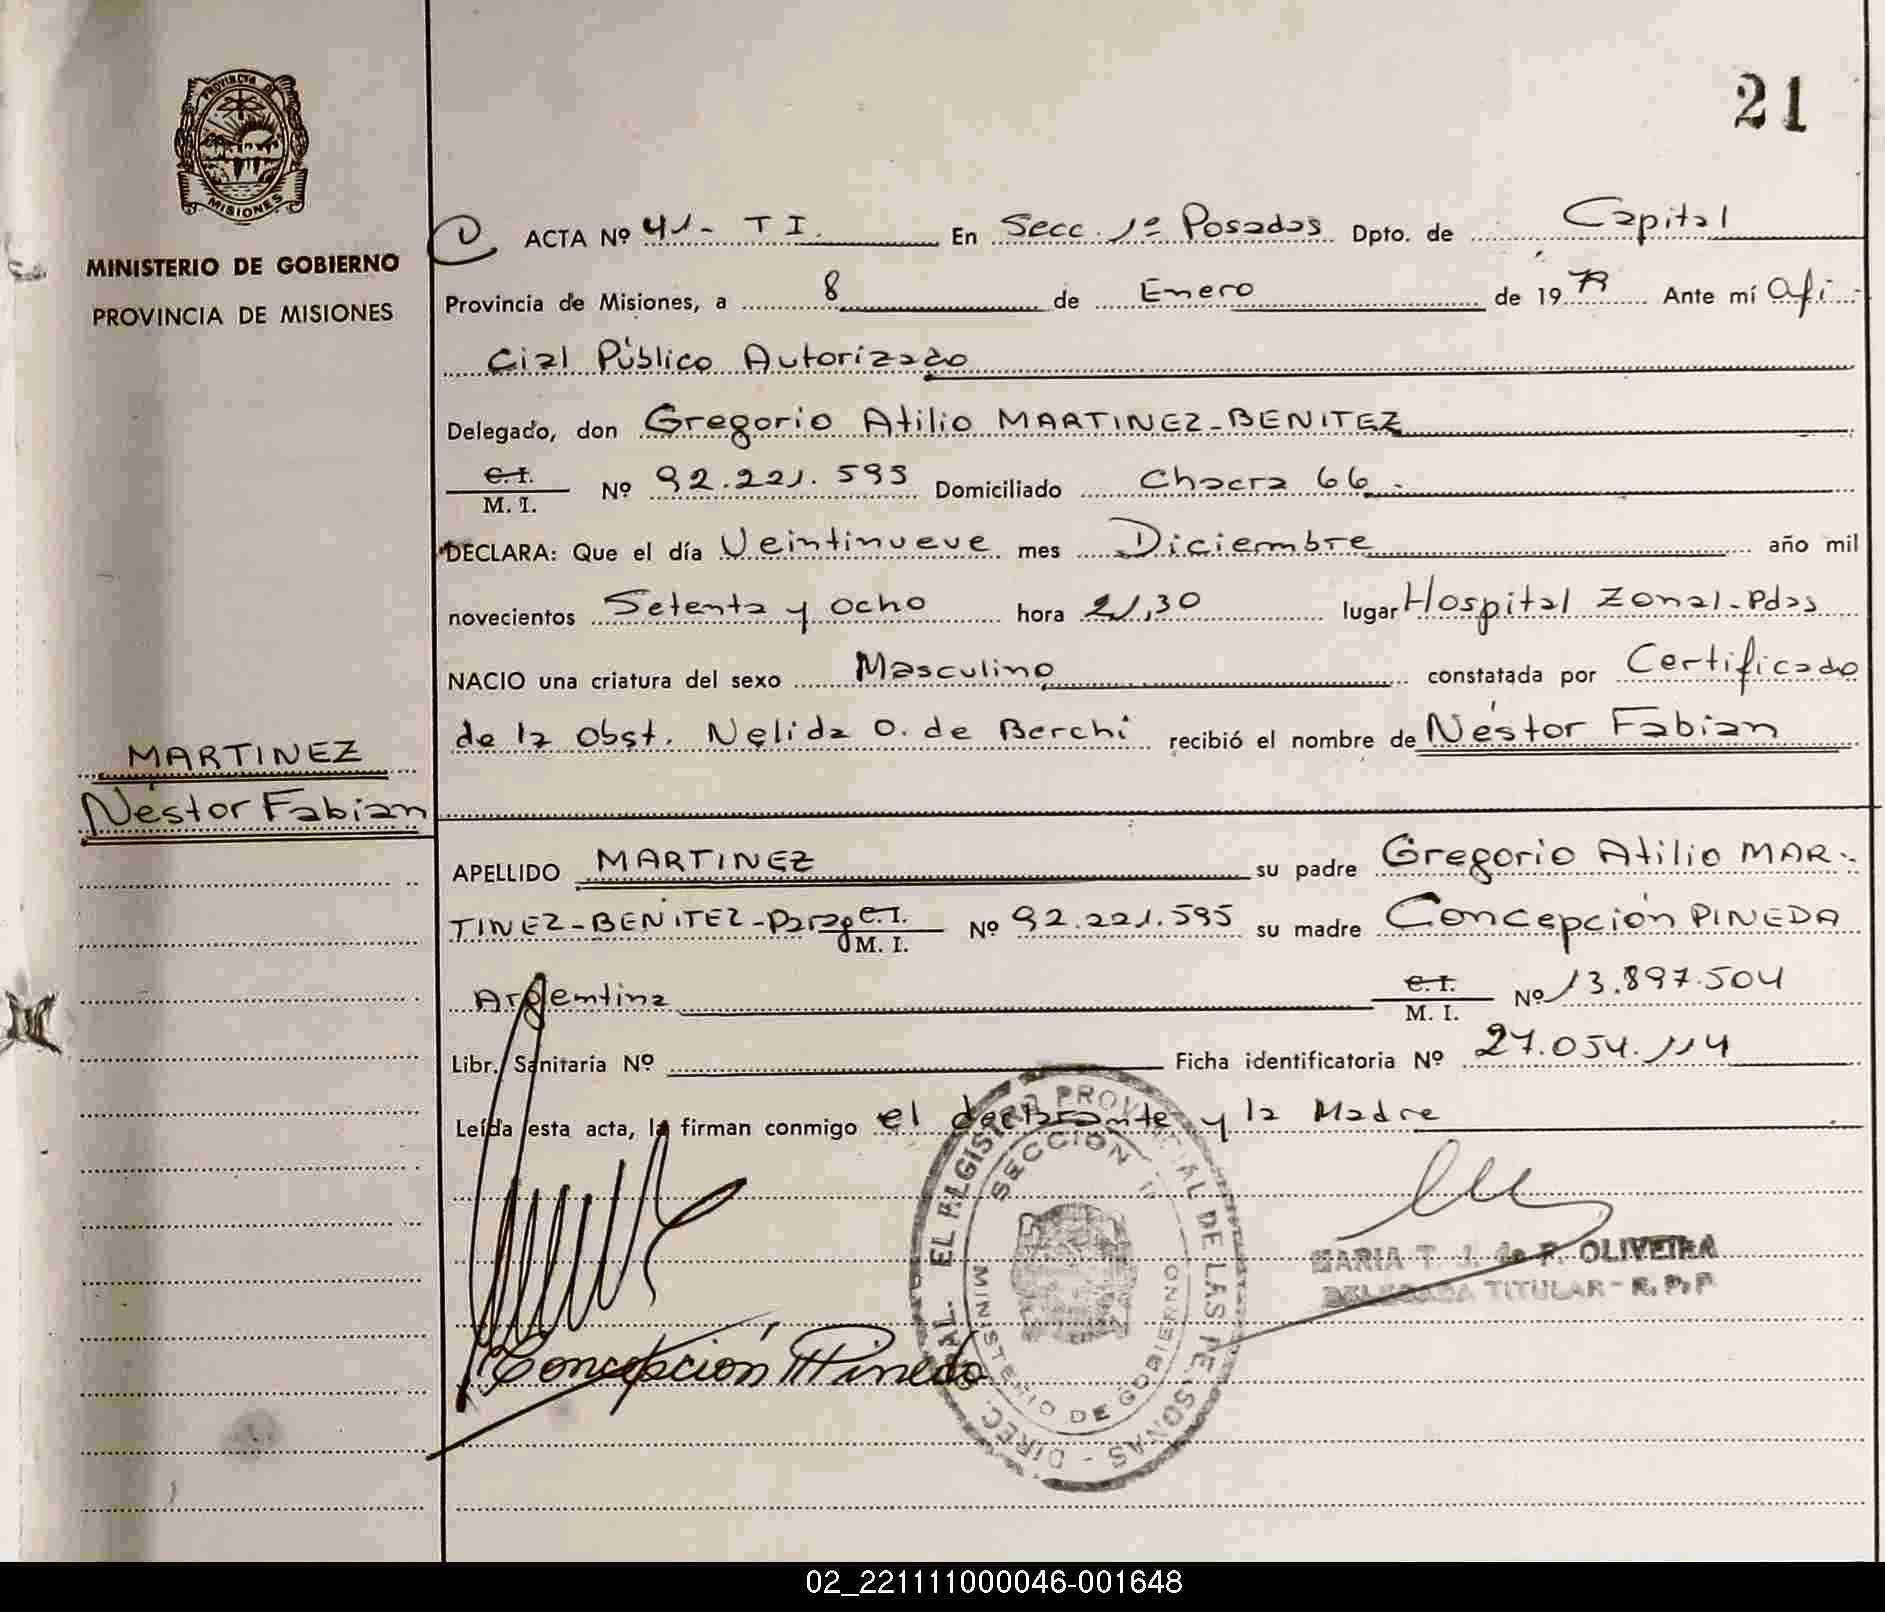 21
PROVINCIA DE
MISIONES
MINISTERIO DE GOBIERNO
PROVINCIA DE MISIONES
ACTA Nº 41- T I. En Secc. 1ª Posadas Dpto. de Capital
Provincia de Misiones, a 8 de Enero de 19 79 Ante mí Ofi-
cial Público Autorizado
Delegado, don Gregorio Atilio MARTINEZ-BENITEZ
C.I.
M. I. Nº 92.221.595 Domiciliado Chacra 66.
DECLARA: Que el día Veintinueve mes Diciembre año mil
novecientos Setenta y ocho hora 21,30 lugar Hospital Zonal-Pdas
NACIO una criatura del sexo Masculino constatada por Certificado
de la Obst. Nelida O. de Berchi recibió el nombre de Néstor Fabian
MARTINEZ
Néstor Fabian
APELLIDO MARTINEZ su padre Gregorio Atilio MAR-
TINEZ-BENITEZ-Parag C.I.
M. I. Nº 92.221.595 su madre Concepción PINEDA
Argentina C.I.
M. I. Nº 13.897.504
Libr. Sanitaría Nº Ficha identificatoria Nº 27.054.114
Leída esta acta, la firman conmigo el declarante y la Madre
Concepción Pineda
DIREC. GRAL. EL REGISTRO PROVINCIAL DE LAS PERSONAS
SECCION
MINISTERIO DE GOBIERNO
MARIA T. J. de P. OLIVEIRA
DELEGADA TITULAR - R. P. P.
02_221111000046-001648